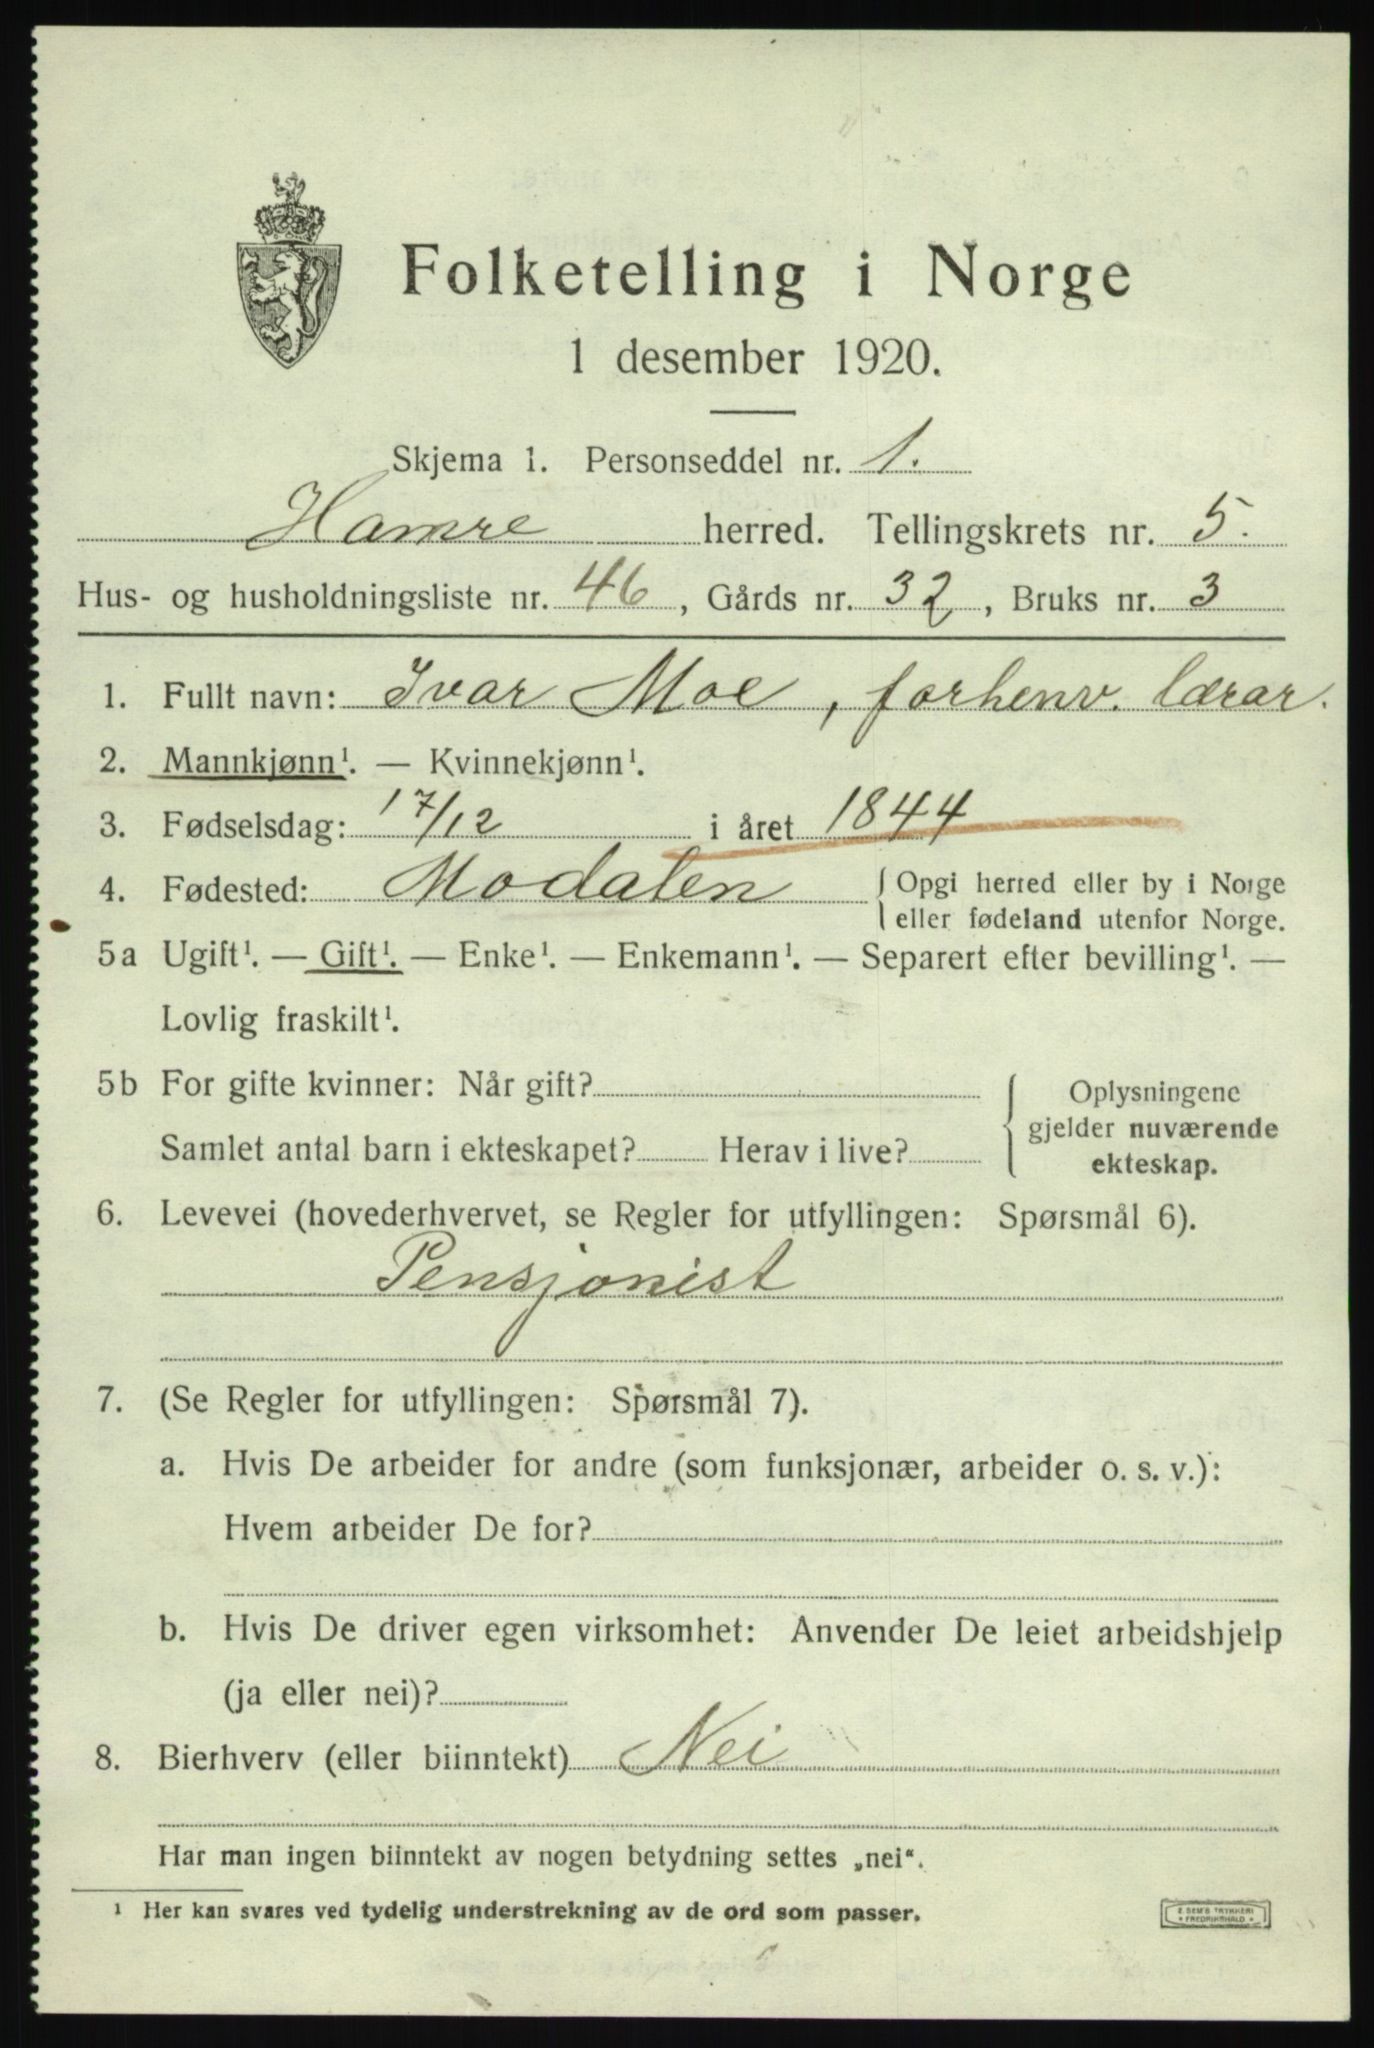 Folketelling i Norge
1 desember 1920.
Skjema 1. Personseddel nr. 1.
Hamre herred. Tellingskrets nr. 5.
Hus- og husholdningsliste nr. 46, Gårds nr. 32, Bruks nr. 3
1. Fullt navn: Ivar Moe, forhenv. lærar.
2. Mannkjønn¹. — Kvinnekjønn¹.
3. Fødselsdag: 17/12 i året 1844
4. Fødested: Modalen { Opgi herred eller by i Norge
eller fødeland utenfor Norge.
5a Ugift¹. — Gift¹. — Enke¹. — Enkemann¹. — Separert efter bevilling¹. —
Lovlig fraskilt¹.
5b For gifte kvinner: Når gift? { Oplysningene
gjelder nuværende
Samlet antal barn i ekteskapet? Herav i live?
ekteskap.
6. Levevei (hovederhvervet, se Regler for utfyllingen: Spørsmål 6).
Pensjonist
7. (Se Regler for utfyllingen: Spørsmål 7).
a. Hvis De arbeider for andre (som funksjonær, arbeider o. s. v.):
Hvem arbeider De for?
b. Hvis De driver egen virksomhet: Anvender De leiet arbeidshjelp
(ja eller nei)?
8. Bierhverv (eller biinntekt) Nei
Har man ingen biinntekt av nogen betydning settes „nei“.
¹ Her kan svares ved tydelig understrekning av de ord som passer.
E. SEM'S TRYKKERI
• FREDRIKSHALD •